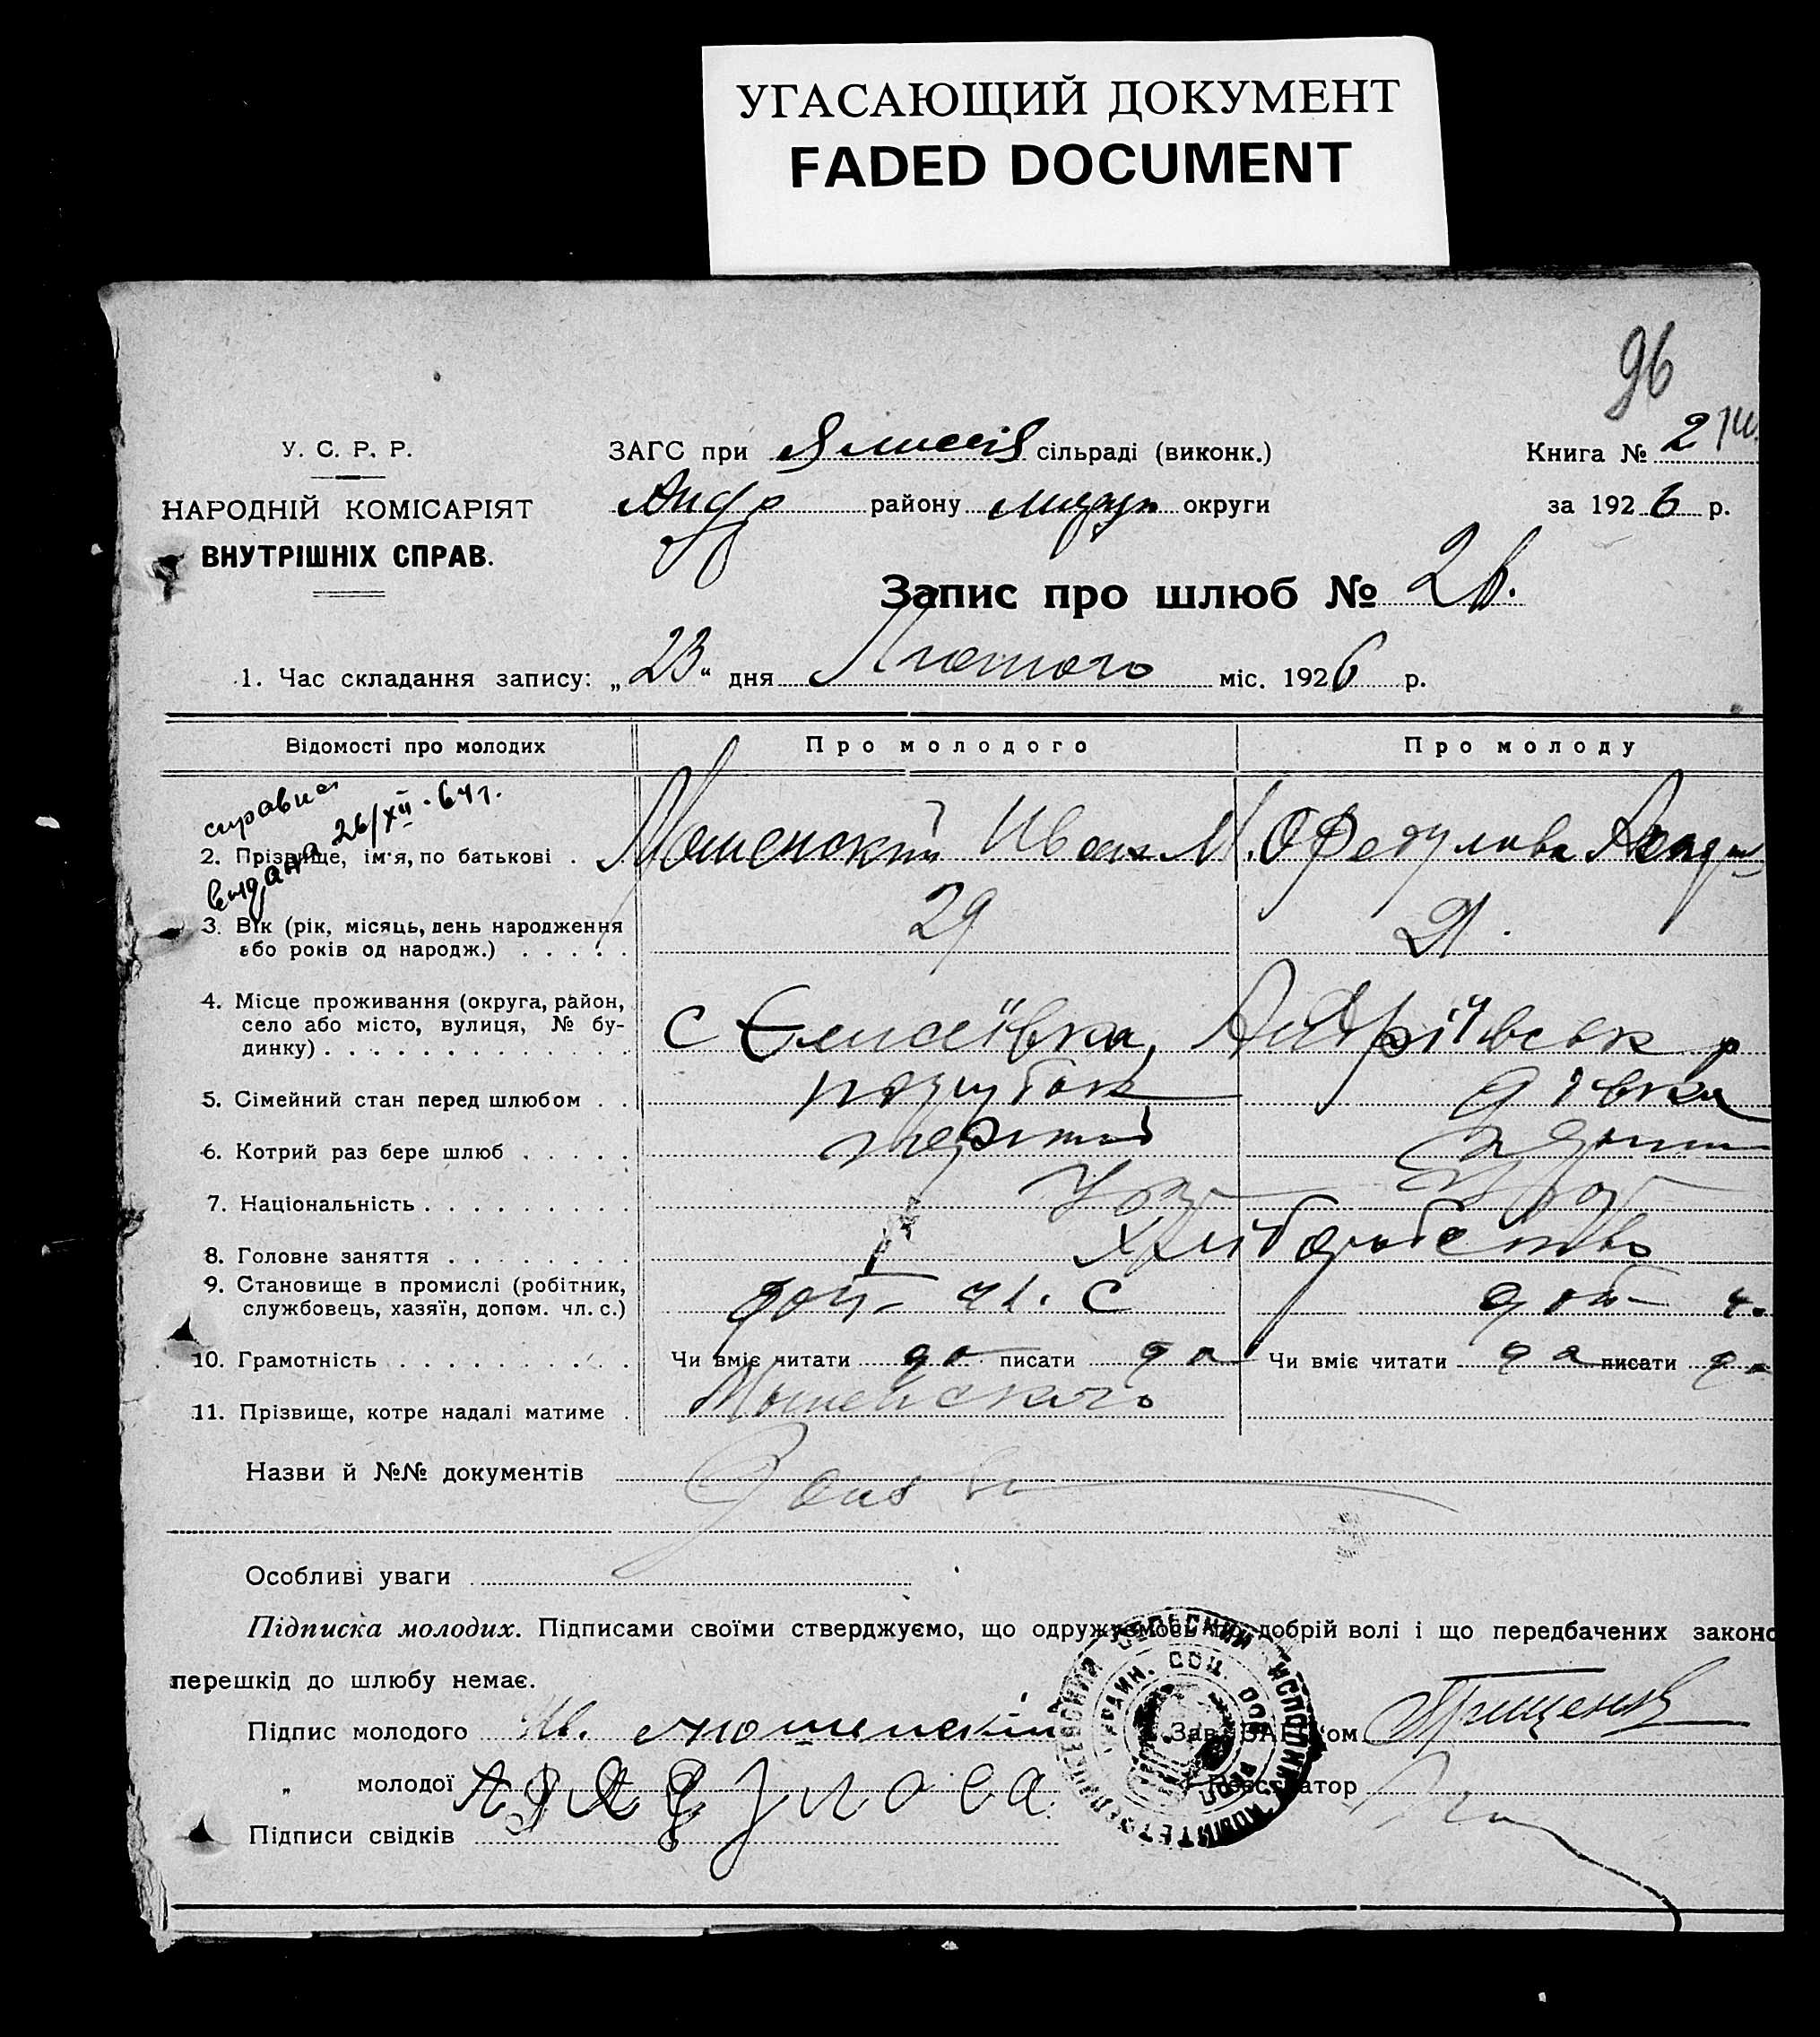 УГАСАЮЩИЙ ДОКУМЕНТ
FADED DOCUMENT
96
У. С. Р. Р.
НАРОДНІЙ КОМІСАРІЯТ
ВНУТРІШНІХ СПРАВ.
ЗАГС при сільраді (виконк.)
Андр району округи
Книга № 2
за 1926 р.
Запис про шлюб № 2
1. Час складання запису: „23“ дня Лютого міс. 1926 р.
Відомості про молодих Про молодого Про молоду
справка
выдана 26/XII
2. Прізвище, ім'я, по батькові . Мошенский Иван М.
3. Вік (рік, місяць, день народження або років од народж.) . . . . . 29 21
4. Місце проживання (округа, район, село або місто, вулиця, № будинку) . . . . . . . . . . . . . . с Єлисеївка, Андріївськ р
5. Сімейний стан перед шлюбом . . парубок дівка
6. Котрий раз бере шлюб . . . . . перший
7. Національність . . . . . . . . . .
8. Головне заняття . . . . . . . . хліборобство
9. Становище в промислі (робітник, службовець, хазяїн, допом. чл. с.) доп чл. с доп
10. Грамотність . . . . . . . . . . . Чи вміє читати да писати да Чи вміє читати да писати да
11. Прізвище, котре надалі матиме . Мошенского
Назви й №№ документів
Особливі уваги
Підписка молодих. Підписами своїми стверджуємо, що одружуємось по добрій волі і що передбачених законо
перешкід до шлюбу немає.
Підпис молодого Ив. Мошенский Зав. ЗАГС'ом
„ молодої Реєстратор
Підписи свідків
СЕЛЬСКИЙ ИСПОЛНИТ. КОМИТЕТ
УКРАИН. СОЦ. СОВ. РЕСП.